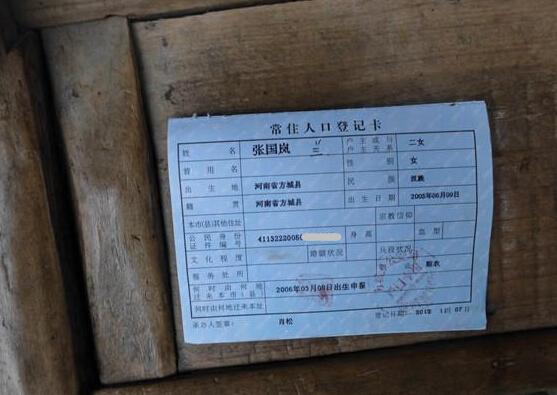 常住人口登记卡
姓名 张国岚 户主或与户主关系 二女
曾用名 性别 女
出生地 河南省方城县 民族 汉族
籍贯 河南省方城县 出生日期 2005年06月09日
本市(县)其他住址 宗教信仰
公民身份证件编号 4113222005 身高 血型
文化程度 婚姻状况 兵役状况
服务处所
何时由何地迁来本市(县) 2006年03月08日出生申报
何时由何地迁来本址
承办人签章: 肖松 登记日期: 2012